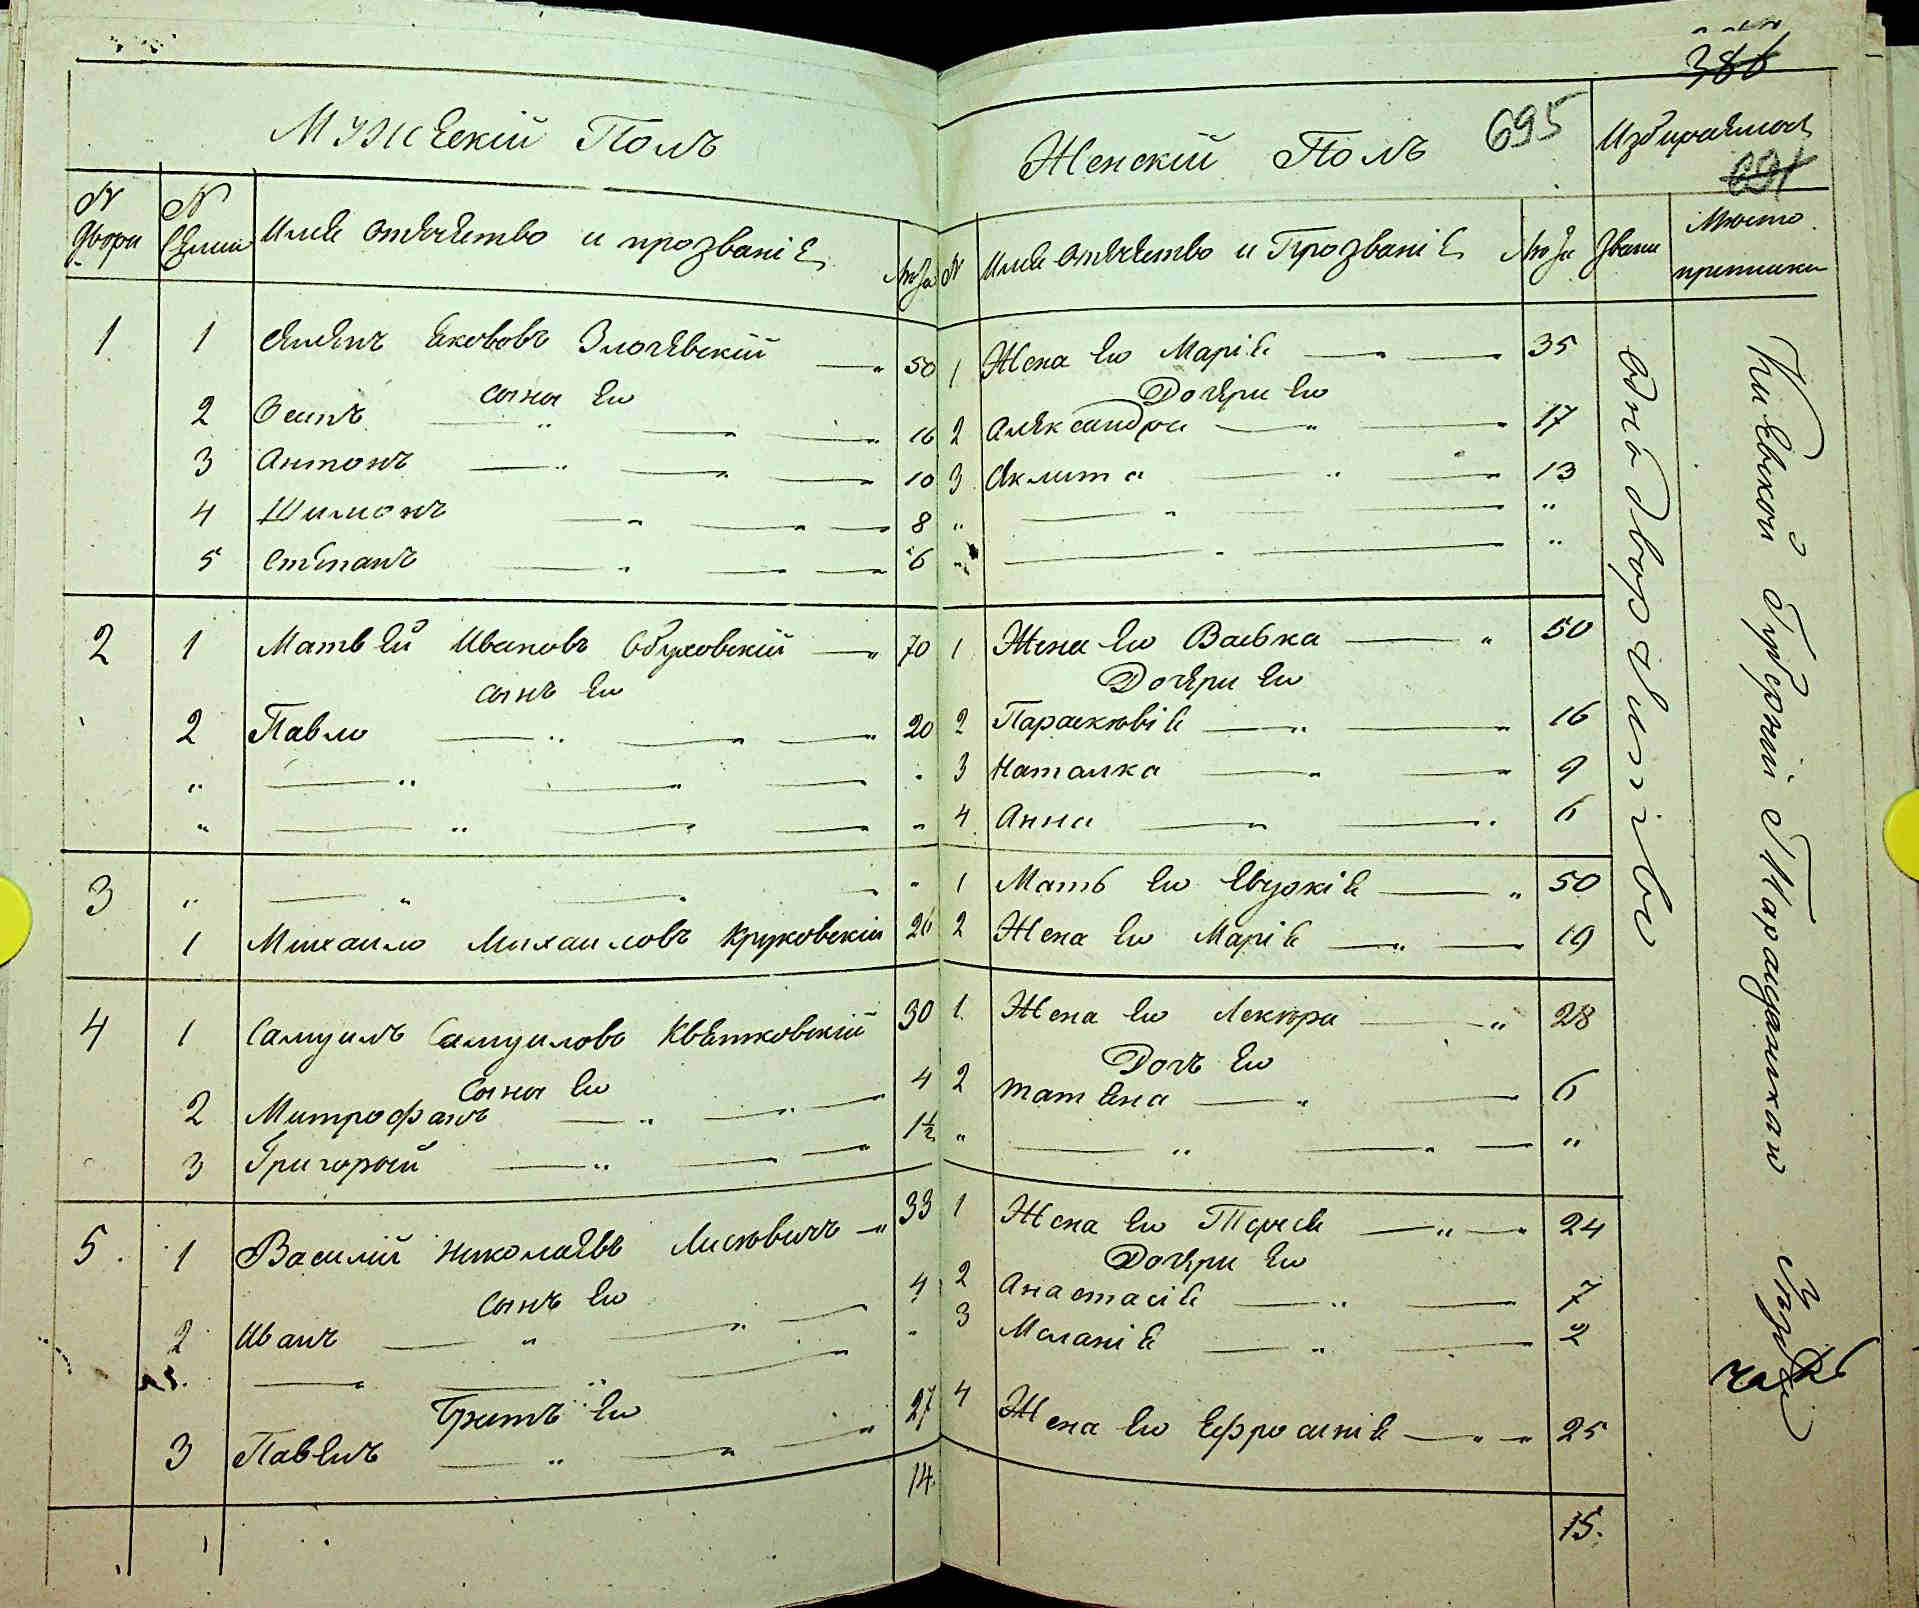 386
695
691
Мужескій Полъ
№ Двора
№ Семьи
Имя Отечество и прозваніе
Лѣта
1 1 Якововъ Злочевскій — 50
Сыны Его
2 Осипъ — 16
3 Антонъ — 10
4 Шимонъ — 8
5 Степанъ — 6
2 1 Матвей Ивановъ Обуховскій — 70
Сынъ Его
2 Павло — 20
3
1 Михаило Михаиловъ Круковскій 26
4 1 Самуилъ Самуиловъ Кветковскій 30
Сыны Его
2 Митрофанъ — 4
3 Григорый — 1½
5. 1 Василій Николаевъ Лисювичъ — 33
Сынъ Его
2 Иванъ — 4
Братъ Его
3 Павелъ — 27
14.
Женскій Полъ
Избираемое
№ Имя Отечество и Прозваніе
Лѣта
Звание
Место приписки
1 Жена Его Марія — 35
Дочери Его
2 Александра — 17
3 Аклита — 13
1 Жена Его Васька — 50
Дочери Его
2 Параскювія — 16
3 Наталка — 9
4 Анна — 6
1 Мать Его Евдокія — 50
2 Жена Его Марія — 19
1. Жена Его — 28
Дочь Его
2 Татяна — 6
1 Жена Его — 24
Дочери Его
2 Анастасія — 7
3 Меланія — 2
4 Жена Его Ефросинія — 25
15.
Однодворчиство
Киевской Губерніи Таращанскаго